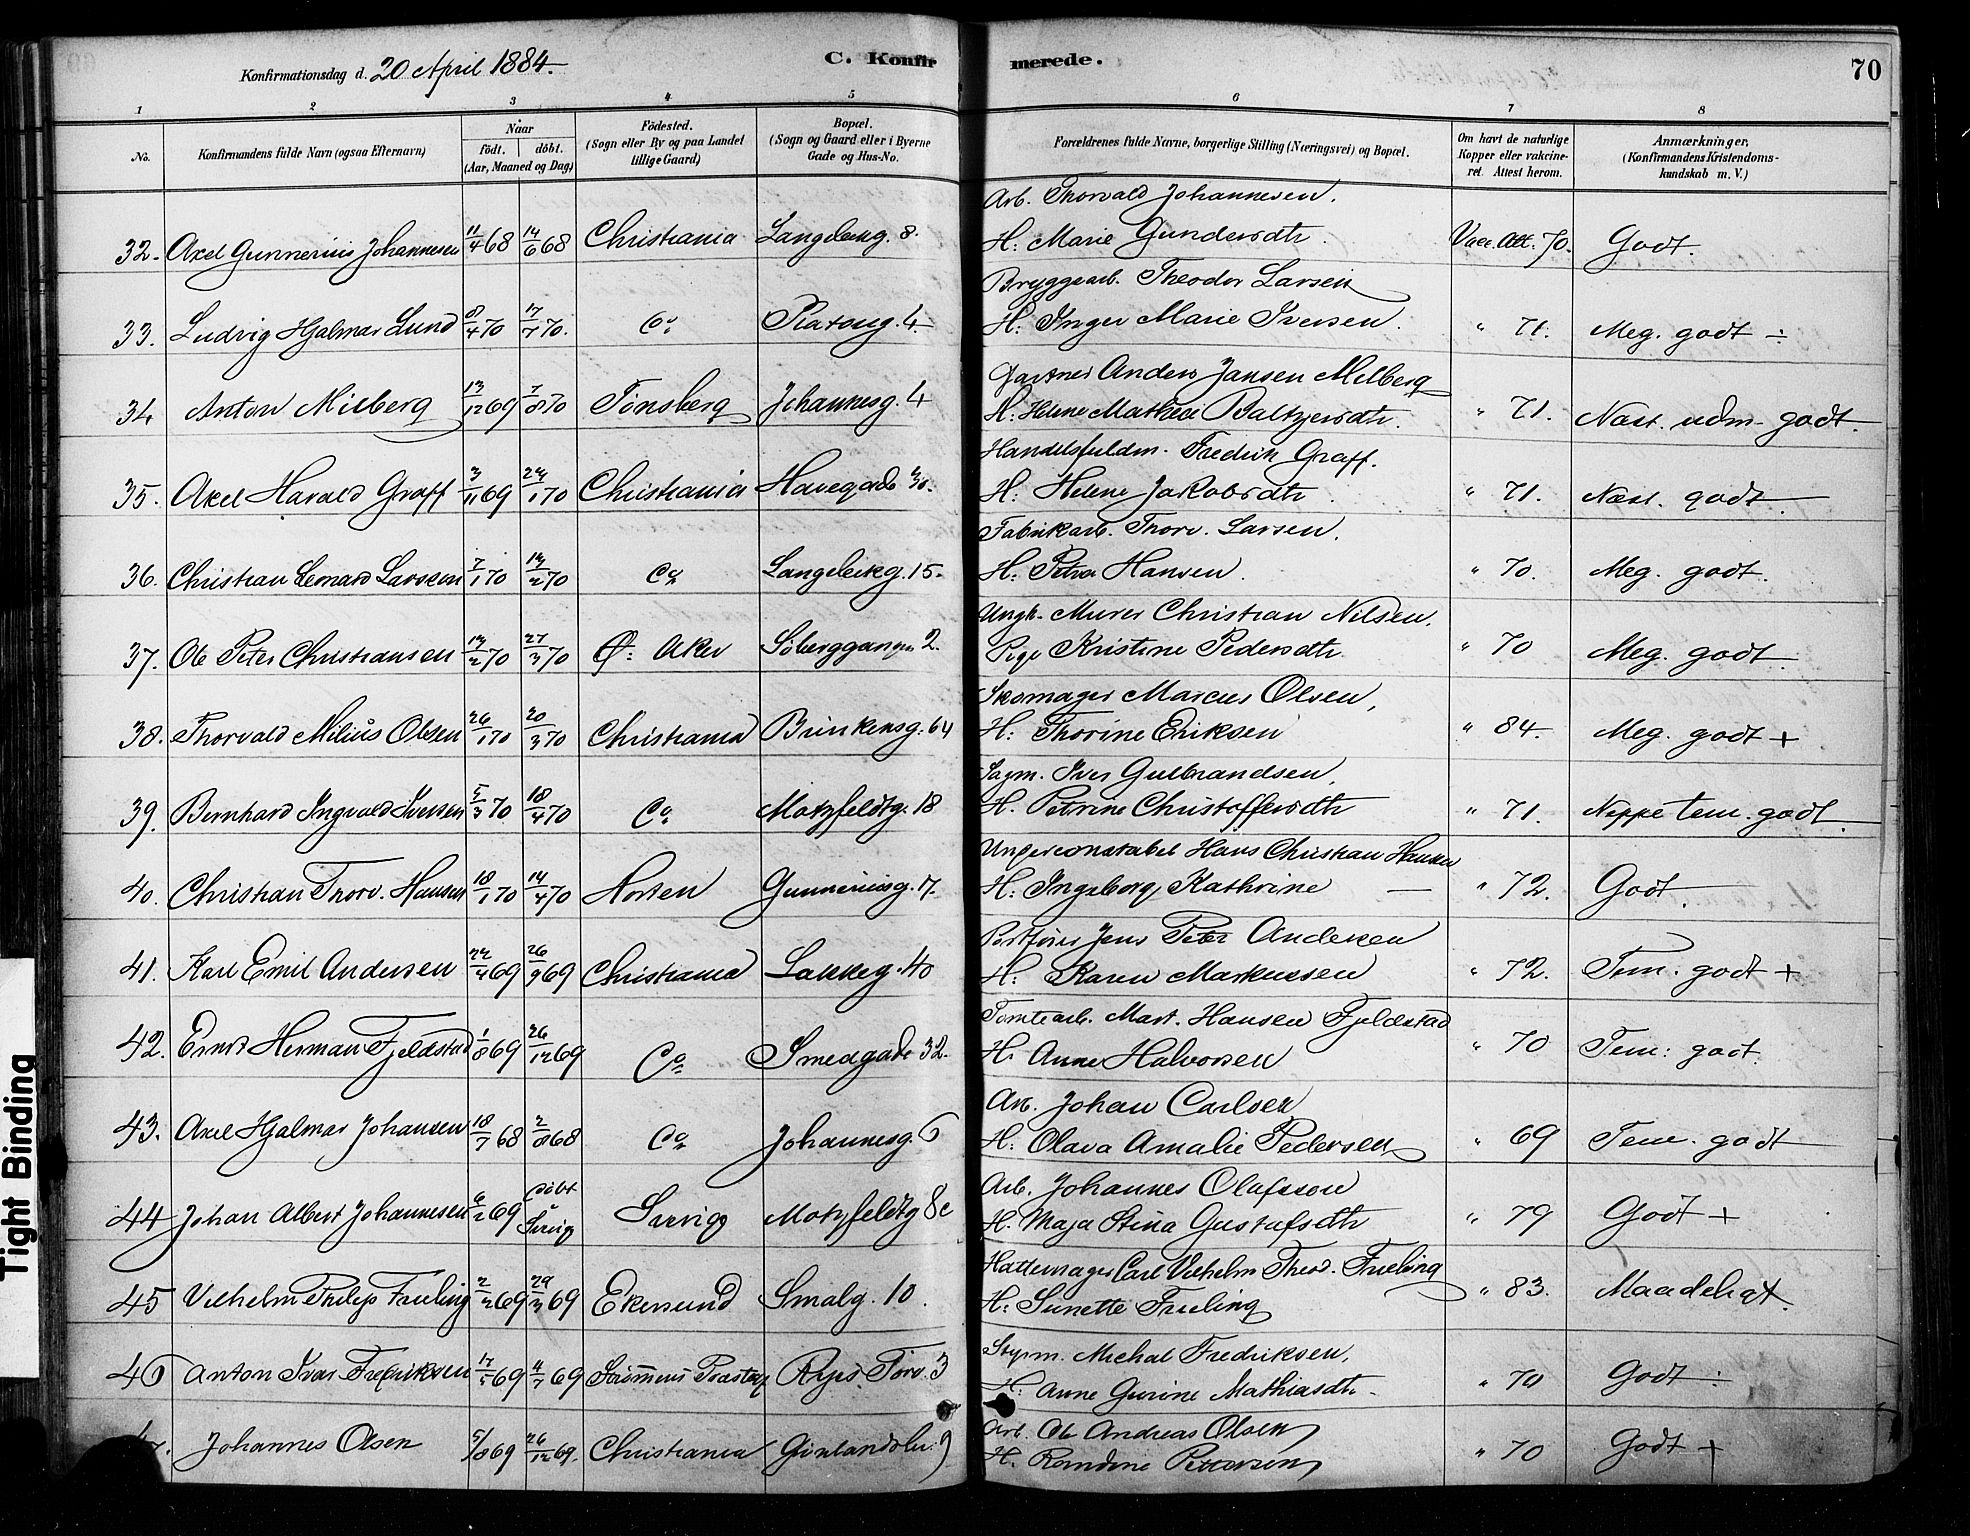 Konfirmationsdag d. 20 April 1884.
C. Konfirmerede.
70
1 2 3 4 5 6 7 8
No. Konfirmandens fulde Navn (ogsaa Efternavn) Naar født. døbt. (Aar, Maaned og Dag) Födested. (Sogn eller By og paa Landet tillige Gaard) Bopæl. (Sogn og Gaard eller i Byerne Gade og Hus-No. Forældrenes fulde Navne, borgerlige Stilling (Næringsvei) og Bopæl. Om havt de naturlige Kopper eller vakcineret. Attest herom. Anmærkninger, (Konfirmandens Kristendomskundskab m. V.)
Arb. Thorvald Johannesen.
32. Axel Gunnerius Johannesen 11/4 68 14/6 68 Christiania Langeleikg. 8. H: Marie Gundersdtr. Vacc. Att. 70. Godt.
Bryggearb. Theodor Larsen
33. Ludvig Hjalmar Lund 8/4 70 17/7 70. Co. H: Inger Marie Iversen. " 71. Meg. godt ÷
Gartner Anders Jansen Milberg
34 Anton Milberg 13/12 69 7/8 70 Tønsberg Johannesg. 4 H: Helene Mathea Baltzersdtr. " 71. Næst. udm. godt.
Handelsfuldm. Fredrik Graff.
35. Axel Harald Graff 3/11 69 24/1 70 Christiania Havegade 30. H: Helene Jakobsdtr " 71. Næst. godt.
Fabrikarb. Thorv. Larsen.
36. Christian Lenard Larsen 7/1 70 13/2 70 Co. Langeleikg. 15. H: Petra Hansen. " 70. Meg. godt.
Ungk. Murer Christian Nilsen.
37. Ole Peter Christiansen 13/2 70 27/3 70 Ø: Aker Søberggangen 2. Pige Kristine Pedersdtr " 70 Meg. godt.
Skomager Marcus Olsen,
38. Thorvald Milius Olsen 26/1 70 20/3 70 Christiania Brinkensg. 64 H: Thorine Eriksen " 84. Meg. godt +
Sagm. Iver Gulbrandsen.
39. Bernhard Ingvald Iversen 5/3 70 18/4 70 Co. Motzfeldtg. 18 H. Petrine Christoffersdtr " 71. Neppe tem. godt.
Underconstabel Hans Christian Hansen
40. Christian Thorv. Hansen 18/1 70 14/4 70 Horten Gunneriusg. 17. H: Ingeborg Kathrine — " 72. Godt.
Portfører Jens Peter Andersen
41. Karl Emil Andersen 22/4 69 26/9 69 Christiania Lakkeg. 40 H: Karen Markussen " 72. Tem. godt +
Tomtearb. Mart. Hansen Fjeldstad
42. Ernst Herman Fjeldstad 1/8 69 26/12 69 Co. Smedgade 32. H: Anne Halvorsen " 70 Tem: godt
Arb. Johan Carlsen
43. Axel Hjalmar Johansen 18/7 68 2/8 68 Co. Johannesg. 6 H: Olava Amalie Pedersen " 69 Tem. godt
Arb. Johannes Olafsson
44 Johan Albert Johannesen 6/2 69 døbt i Sverig Sverig Motzfeldtg 8c H. Maja Stina Gustafsdtr " 79 Godt +
Hattemager Carl Vilhelm Theod. Frieling
45 Vilhelm Philip Frieling 2/2 69 29/3 69 Ekersund Smalg. 10. H: Sunette Frieling " 83. Maadeligt.
Styrm. Michal Fredriksen,
46 Anton Ivar Fredriksen 17/5 69 4/7 69 Ryes Torv. 3 H: Anne Gurine Mathiasdtr. " 70 Godt
Arb. Ole Andreas Olsen
47. Johannes Olsen 5/8 69 26/12 69. Christiania Grønlandsler: 9 H. Randine Pettersen " 70 Godt +
Tight Binding